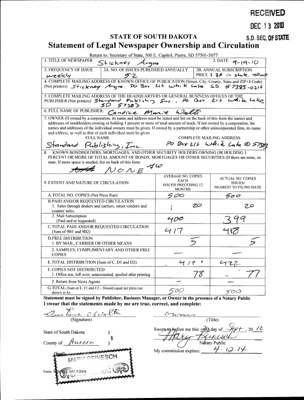 RECEIVED
DEC 13 2010
S.D. SEC. OF STATE
STATE OF SOUTH DAKOTA
Statement of Legal Newspaper Ownership and Circulation
Return to: Secretary of State, 500 E. Capitol, Pierre, SD 57501-5077
1. TITLE OF NEWSPAPER Stickney Argus
2. DATE 9-19-10
3. FREQUENCY OF ISSUE
weekly
3A. NO. OF ISSUES PUBLISHED ANNUALLY
52
3B. ANNUAL SUBSCRIPTION
PRICE
4. COMPLETE MAILING ADDRESS OF KNOWN OFFICE OF PUBLICATION (Street, City, County, State and ZIP+4 Code)
(Not printers) Stickney Argus, PO Box 216 White Lake SD 57383-0216
5. COMPLETE MAILING ADDRESS OF THE HEADQUARTERS OR GENERAL BUSINESS OFFICES OF THE
PUBLISHER (Not printers) Standard Publishing, Inc., PO Box 216 White Lake
SD 57383
6. FULL NAME OF PUBLISHER:
7. OWNER (If owned by a corporation, its name and address must be stated and list on the back of this form the names and
addresses of stockholders owning or holding 1 percent or more of total amount of stock. If not owned by a corporation, the
names and addresses of the individual owners must be given. If owned by a partnership or other unincorporated firm, its name
and address, as well as that of each individual must be given.
FULL NAME
COMPLETE MAILING ADDRESS
Standard Publishing, Inc.
PO Box 216 White Lake SD 57383
8. KNOWN BONDHOLDERS, MORTGAGEES, AND OTHER SECURITY HOLDERS OWNING OR HOLDING 1
PERCENT OR MORE OF TOTAL AMOUNT OF BONDS, MORTGAGES OR OTHER SECURITIES (If there are none, so
state. If more space is needed, list on back of this form.
NONE
9. EXTENT AND NATURE OF CIRCULATION
AVERAGE NO. COPIES
EACH
ISSUE PRECEDING 12
MONTHS
ACTUAL NO. COPIES
ISSUED
NEAREST TO FILING DATE
A. TOTAL NO. COPIES (Net Press Run)
500
500
B. PAID AND/OR REQUESTED CIRCULATION
1. Sales through dealers and carriers, street vendors and
counter sales.
20
20
2. Mail Subscription
(Paid and/or requested)
400
399
C. TOTAL PAID AND/OR REQUESTED CIRCULATION
(Sum of 9B1 and 9B2)
417
418
D. FREE DISTRIBUTION
1. BY MAIL, CARRIER OR OTHER MEANS
5
5
2. SAMPLES, COMPLIMENTARY AND OTHER FREE
COPIES
E. TOTAL DISTRIBUTION (Sum of C, D1 and D2)
F. COPIES NOT DISTRIBUTED
1. Office use, left over, unaccounted, spoiled after printing
78
77
2. Return from News Agents
G. TOTAL (Sum of E, F1 and F2 - Should equal net press run
shown in A)
500
500
Statement must be signed by Publisher, Business Manager, or Owner in the presence of a Notary Public
I swear that the statements made by me are true, correct, and complete:
(Signature)
(Title)
State of South Dakota )
County of Aurora )
Sworn to before me this day of Sept, 2010
Notary Public
My commission expires: 4-12-14